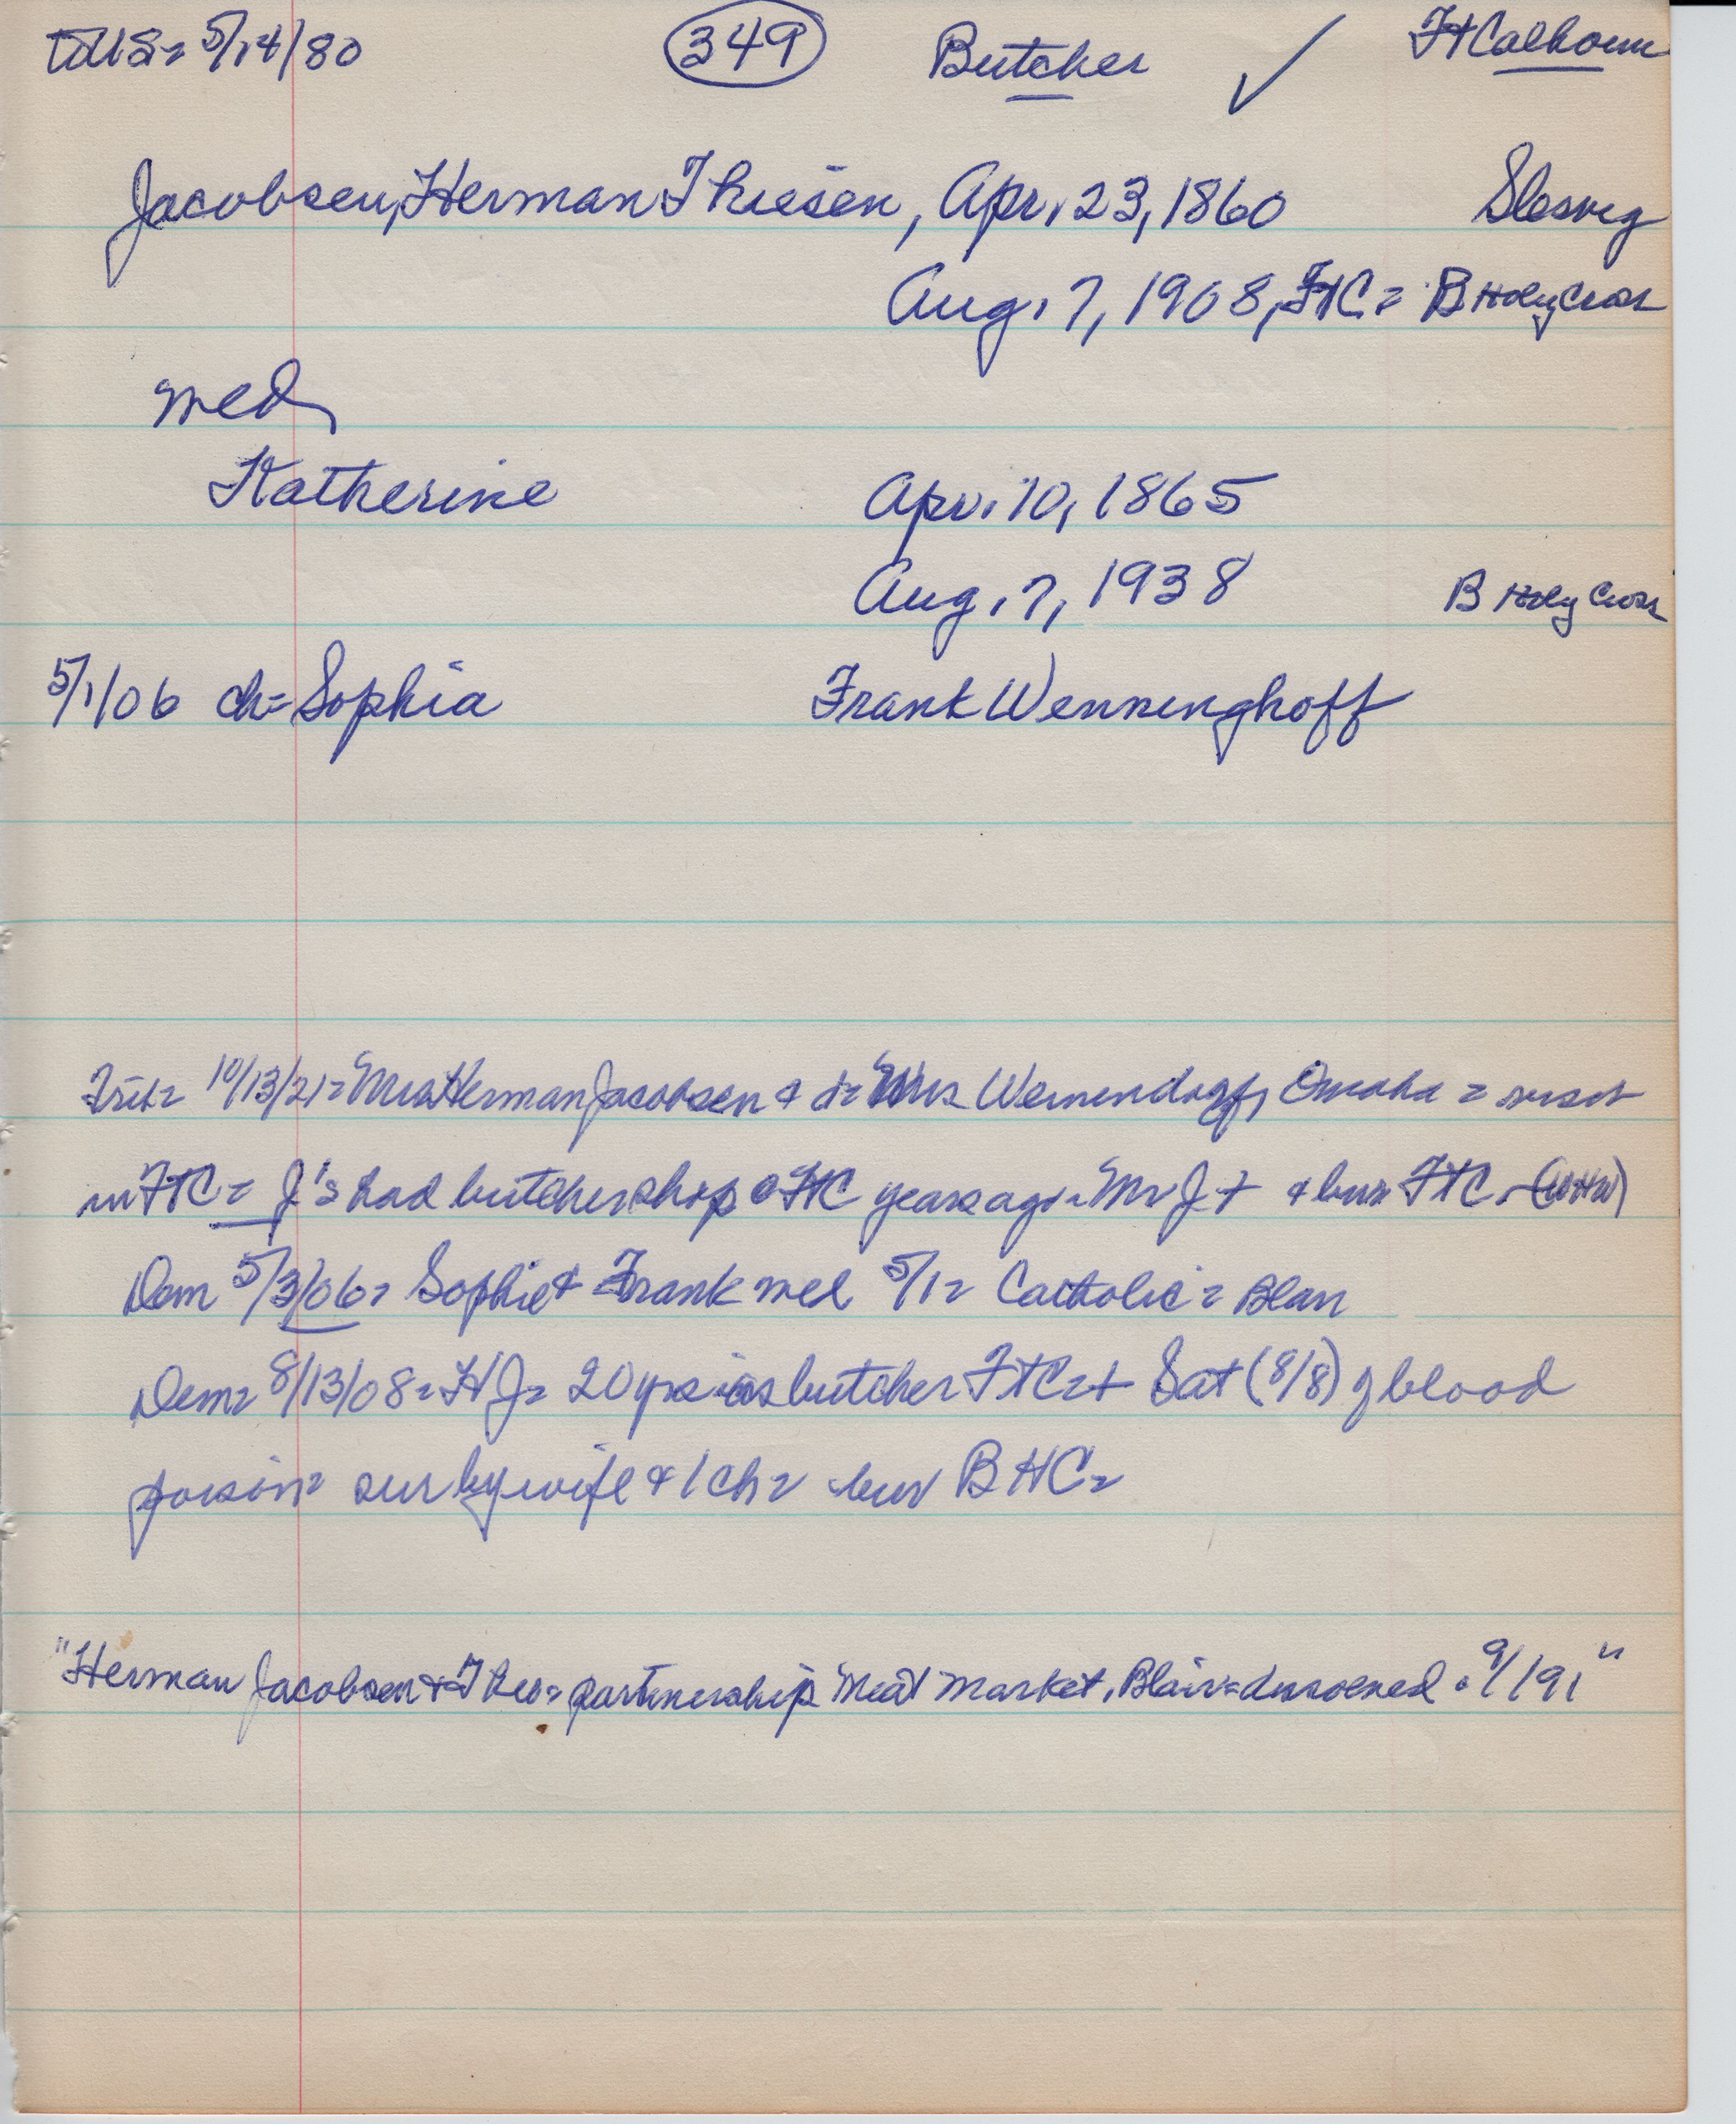 to US = 5/14/80 349 Butcher ✓ Ft Calhoun
Jacobsen, Herman Thiesen, Apr. 23, 1860 Slesvig
Aug. 7, 1908, FtC = B Holy Cross
med
Katherine Apr. 10, 1865
Aug. 7, 1938 B Holy Cross
5/1/06 ch = Sophia Frank Wenninghoff
10/13/21 = Mrs Herman Jacobsen & d = Mrs Omaha =
in FTC = J's had butcher shop @ FtC years ago = Mr J + & bur FTC. (WHW)
Dem 5/3/06 = Sophie & Frank med 5/1 = Catholic = Blair
Dem = 8/13/08 = HJ = 20 yrs as butcher FTC = + Sat (8/8) of blood
poison = sur by wife & 1 ch = bur BHC =
"Herman Jacobsen & Theo = partnership Meat Market, Blair = dissolved . 9/191"